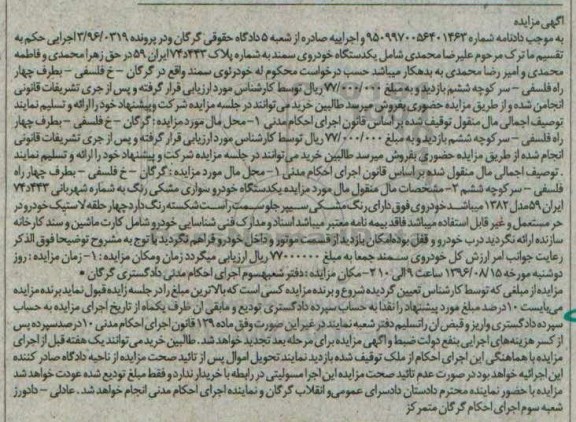 آگهی مزایده
به موجب دادنامه شماره ۹۵۰۹۹۷۰۰۵۶۴۰۱۴۶۳ و اجراییه صادره از شعبه ۵ دادگاه حقوقی گرگان ودر پرونده ۳/۹۶/۰۳۱۹ اجرایی حکم به
تقسیم ما ترک مرحوم علیرضا محمدی شامل یکدستگاه خودروی سمند به شماره پلاک ۷۴د۴۴۳ ایران ۵۹ در حق زهرا محمدی و فاطمه
محمدی و امیر رضا محمدی به بدهکار میباشد حسب درخواست محکوم له خودرلوی سمند واقع در گرگان – خ فلسفی – بطرف چهار
راه فلسفی – سر کوچه ششم بازدید و به مبلغ ۷۷/۰۰۰/۰۰۰ ریال توسط کارشناس مورد ارزیابی قرار گرفته و پس از جری تشریفات قانونی
انجامن شده و از طریق مزایده حضوری بفروش میرسد طالبین خرید می توانند در جلسه مزایده شرکت و پیشنهاد خود را ارائه و تسلیم نمایند
توصیف اجمالی مال منقول توقیف شده بر اساس قانون اجرای احکام مدنی ۱- محل مال مورد مزایده: گرگان – خ فلسفی – بطرف چهار
راه فلسفی – سر کوچه ششم بازدید و به مبلغ ۷۷/۰۰۰/۰۰۰ ریال توسط کارشناس مورد ارزیابی قرار گرفته و پس از جری تشریفات قانونی
انجام شده از طریق مزایده حضوری بفروش میرسد طالبین خرید می توانند در جلسه مزایده شرکت و پیشنهاد خود را ارائه و تسلیم نمایند
. توصیف اجمالی مال منقول شده بر اساس قانون اجرای احکام مدنی ۱- محل مال مورد مزایده: گرگان – خ فلسفی – بطرف چهار راه
فلسفی – سر کوچه ششم ۲- مشخصات مال منقول مال مورد مزایده یکدستگاه خودرو سواری مشکی رنگ به شماره شهربانی ۷۴د۴۴۳
ایران ۵۹ مدل ۱۳۸۲ میباشد خودروی فوق دارای رنگ مشکی سپر جلو سمت راست شکسته رنگ دارد چهار حلقه لاستیک خودرو در
حر مستعمل و غیر قابل استفاده میباشد فاقد بیمه نامه معتبر میباشد اسناد و مدارک فنی شناسایی خودرو شامل کارت ماشین و سند کارخانه
سازنده ارائه نگردید درب خودرو و قفل بوده امکان بازدید از قسمت موتور و داخل خودرو فراهم نگردید با توج به مشروح توضیحا فوق الذکر
رعایت جوانب امر ارزش کل خودروی سمند جمعا به مبلغ ۷۷۰۰۰۰۰۰ ریال ارزیابی میگردد زمان ومکان مزایده: ۱- زمان مزایده: روز
دوشنبه مورخه ۱۳۹۶/۰۸/۱۵ ساعت ۹ الی ۱۰ ۲- مکان مزایده: دفتر شعبه سوم اجرای احکام مدنی دادگستری گرگان *
مزایده از مبلغی که توسط کارشناس تعیین گردیده شروع و برنده مزایده کسی است که بالاترین مبلغ را در جلسه زایده قبول نماید برنده مزایده
می بایست ۱۰ درصد مبلغ مورد پیشنهاد را نقدا به حساب سپرده دادگستری تودیع و مابقی آن ظرف یکماه از تاریخ اجرای مزایده به حساب
سپرده دادگستری واریز و قبض آن را تسلیم دفتر شعبه نمایند در غیر این صورت وفق ماده ۱۲۹ قانون اجرای احکام مدنی ۱۰ درصد سپرده پس
از کسر هزینه های اجرایی بنفع دولت ضبط و آگهی مزایده برای مرحله بعد تجدید خواهد شد. طالبین خرید می توانند یک هفته قبل از اجرای
مزایده با هماهنگی این اجرای احکام از ملک توقیف شده بازدید نمایند تحویل اموال پس از تائید صحت مزایده از ناحیه دادگاه صادر کننده
این اجرائیه خواهد بود در صورت عدم تائید صحت مزایده این اجرا مسولیتی در رابطه با خریدار ندارد و فقط مبلغ تودیع شده عودت خواهد شد
مزایده با حضور نماینده محترم دادستان دادسرای عمومی و انقلاب گرگان و نماینده اجرای احکام مدنی انجام خواهد شد. عادلی – دادورز
شعبه سوم اجرای احکام گرگان متمرکز